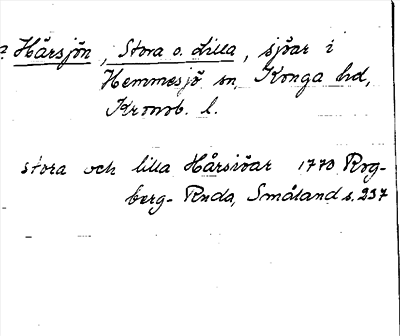 ? Hårsjön, Stora o. Lilla, sjöar i
Hemmesjö sn, Konga hd,
Kronob. l.
stora och lilla Hårsiöar 1770 Rog-
berg-Ruda, Småland s. 237